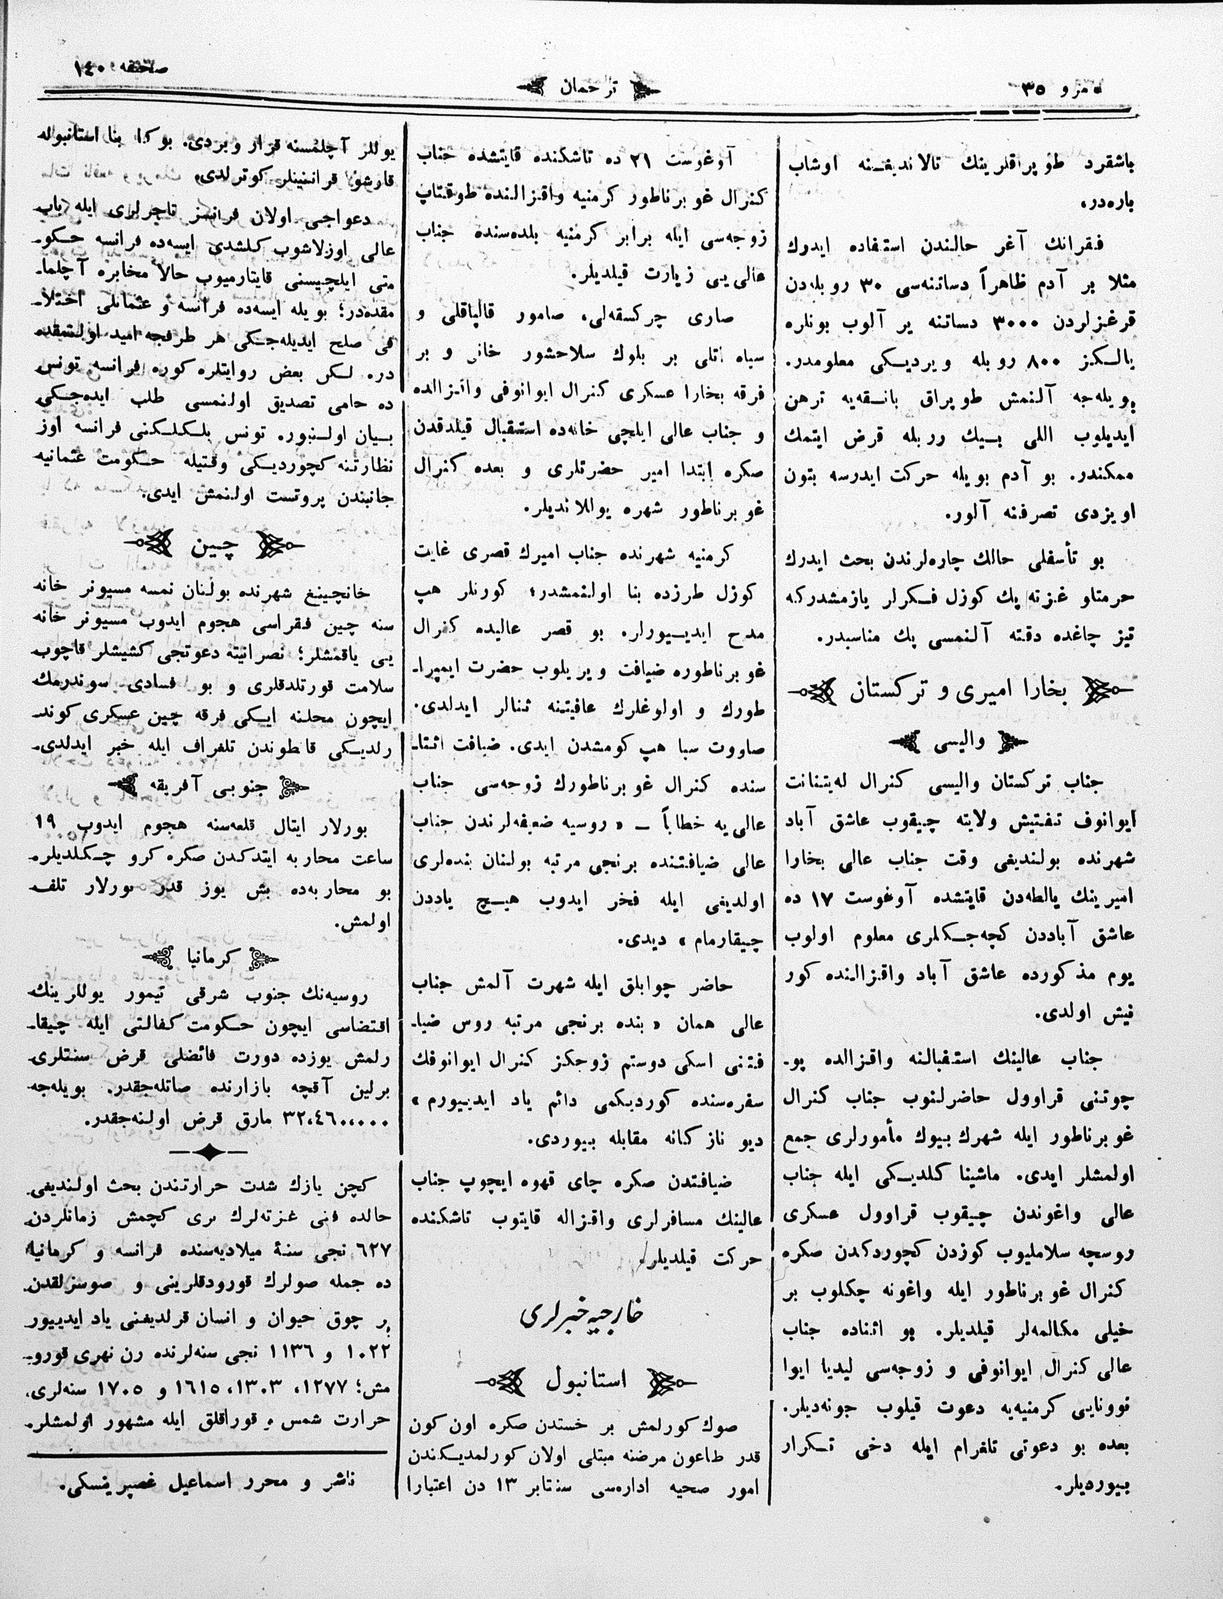 نمرو ٣٥
ترجمان
صحیفه ١٤٠
باشقرد طوپراقلرینك تالاندیغنه اوشاب
باره‌در.
فقرانك آغر حالندن استفاده ایدرك
مثلا بر آدم ظاهراً دساتنه‌سی ٣٠ روبله‌دن
قرغزلردن ٣٠٠٠ دساتنه یر آلوب بونلره
یالكز ٨٠٠ روبله ویردیكی معلومدر.
بویله‌جه آلنمش طوپراق بانقه‌یه ترهن
ایدیلوب اللی بیك روبله قرض ایتمك
ممكندر. بو آدم بویله حركت ایدرسه بتون
اویزدی تصرفنه آلور.
بو تأسفلی حالك چاره‌لرندن بحث ایدرك
حرمتلو غزته پك كوزل فكرلر یازمشدركه
تیز چاغده دقته آلنمسی پك مناسبدر.
بخارا امیری و تركستان
والیسی
جناب تركستان والیسی كنرال له‌یتنانت
ایوانوف تفتیش ولایته چیقوب عاشق آباد
شهرنده بولندیغی وقت جناب عالی بخارا
امیرینك یالطه‌دن قایتشده آوغوست ١٧ ده
عاشق آباددن كچه‌جكلری معلوم اولوب
یوم مذكورده عاشق آباد واقزالنده كور
نیش اولدی.
جناب عالینك استقبالنه واقزالده پو-
چوتنی قراوول حاضرلنوب جناب كنرال
غوبرناطور ایله شهرك بیوك مأمورلری جمع
اولمشلر ایدی. ماشینا كلدیكی ایله جناب
عالی واغوندن چیقوب قراوول عسكری
روسچه سلاملیوب كوزدن كچوردكدن صكره
كنرال غوبرناطور ایله واغونه چكلوب بر
خیلی مكالمه‌لر قیلدیلر. بو اثناده جناب
عالی كنرال ایوانوفی و زوجه‌سی لیدیا ایوا
نوونایی كرمنیه‌یه دعوت قیلوب جونه‌دیلر.
بعده بو دعوتی تلغرام ایله دخی تكرار
بیوردیلر.
آوغوست ٢١ ده تاشكنده قایتشده جناب
كنرال غوبرناطور كرمنیه واقزالنده طوقتاپ
زوجه‌سی ایله برابر كرمنیه بلده‌سنده جناب
عالی‌یی زیارت قیلدیلر.
صاری چركسقه‌لی، صامور قالپاقلی و
سیاه اتلی بر بلوك سلاحشور خانی و بر
فرقه بخارا عسكری كنرال ایوانوفی واقزالده
و جناب عالی ایلچی خانه‌ده استقبال قیلدقدن
صكره ابتدا امیر حضرتلری و بعده كنرال
غوبرناطور شهره یوللاندیلر.
كرمنیه شهرنده جناب امیرك قصری غایت
كوزل طرزده بنا اولنمشدر؛ كورنلر هپ
مدح ایدییورلر. بو قصر عالیده كنرال
غوبرناطوره ضیافت ویریلوب حضرت ایمپرا-
طورك و اولوغلرك عافیتنه ثنالر ایدلدی.
صاووت سبا هپ كومشدن ایدی. ضیافت اثنا-
سنده كنرال غوبرناطورك زوجه‌سی جناب
عالی‌یه خطاباً — «روسیه ضعیفه‌لرندن جناب
عالی ضیافتنده برنجی مرتبه بولنان بنده‌لری
اولدیغی ایله فخر ایدوب هیچ یاددن
چیقارمام» دیدی.
حاضر جوابلق ایله شهرت آلمش جناب
عالی همان «بنده برنجی مرتبه روس ضیا-
فتنی اسكی دوستم زوجكز كنرال ایوانوفك
سفره‌سنده كوردیكمی دائم یاد ایدییورم»
دیو نازكانه مقابله بیوردی.
ضیافتدن صكره چای قهوه ایچوپ جناب
عالینك مسافرلری واقزاله قایتوب تاشكنده
حركت قیلدیلر.
خارجیه خبرلری
استانبول
صوك كورلمش بر خستدن صكره اون كون
قدر طاعون مرضنه مبتلی اولان كورلمدیكندن
امور صحیه اداره‌سی سنتابر ١٣ دن اعتبارا
یوللر آچلمسنه قرار ویردی. بوكا بنا استانبوله
قارشو قرانتینلر كوترلدی.
دعواجی اولان فرانسز تاجرلری ایله باب
عالی اوزلاشوب كلشدی ایسه‌ده فرانسه حكو-
متی ایلچیسنی قایتارمیوب حالا مخابره آچلما-
مقده‌در؛ بویله ایسه‌ده فرانسه و عثمانلی اختلا-
فی صلح ایدیله‌جكی هر طرفجه امید اولنمقده
در. لكن بعض روایتلره كوره فرانسه تونس
ده حامی تصدیق اولنمسی طلب ایده‌جكی
بیان اولنیور. تونس بلكلكنی فرانسه اوز
نظارتنه كچوردیكی وقتیله حكومت عثمانیه
جانبندن پروتست اولنمش ایدی.
چین
خانچینغ شهرنده بولنان نمسه مسیونر خانه
سنه چین فقراسی هجوم ایدوب مسیونر خانه
یی یاقمشلر؛ نصرانیته دعوتجی كشیشلر قاچوب
سلامت قورتلدقلری و بو فسادی سوندرمك
ایچون محلنه ایكی فرقه چین عسكری كوند
رلدیكی قانطوندن تلغراف ایله خبر ایدلدی.
جنوبی آفریقه
بورلار ایتال قلعه‌سنه هجوم ایدوب ١٩
ساعت محاربه ایتدكدن صكره كرو چكلدیلر.
بو محاربه‌ده بش یوز قدر بورلار تلف
اولمش.
كرمانیا
روسیه‌نك جنوب شرقی تیمور یوللرینك
اقتضاسی ایچون حكومت كفالتی ایله چیقا-
رلمش یوزده دورت فائضلی قرض سنتلری
برلین آقچه بازارنده صاتله‌جقدر. بویله‌جه
٣٢،٤٦٠،٠٠٠ مارق قرض اولنه‌جقدر.
كچن یازك شدت حرارتندن بحث اولندیغی
حالده فنی غزته‌لرك بری كچمش زمانلردن
٦٢٧ نجی سنهٔ میلادیه‌سنده فرانسه و كرمانیا
ده جمله صولرك قورودقلرینی و صوسزلقدن
پر چوق حیوان و انسان قرلدیغنی یاد ایدییور
١٠٢٢ و ١١٣٦ نجی سنه‌لرنده رن نهری قورو-
مش؛ ١٢٧٧، ١٣٠٣، ١٦١٥ و ١٧٠٥ سنه‌لری،
حرارت شمس و قوراقلق ایله مشهور اولمشلر.
ناشر و محرر اسماعیل غصپرینسكی.